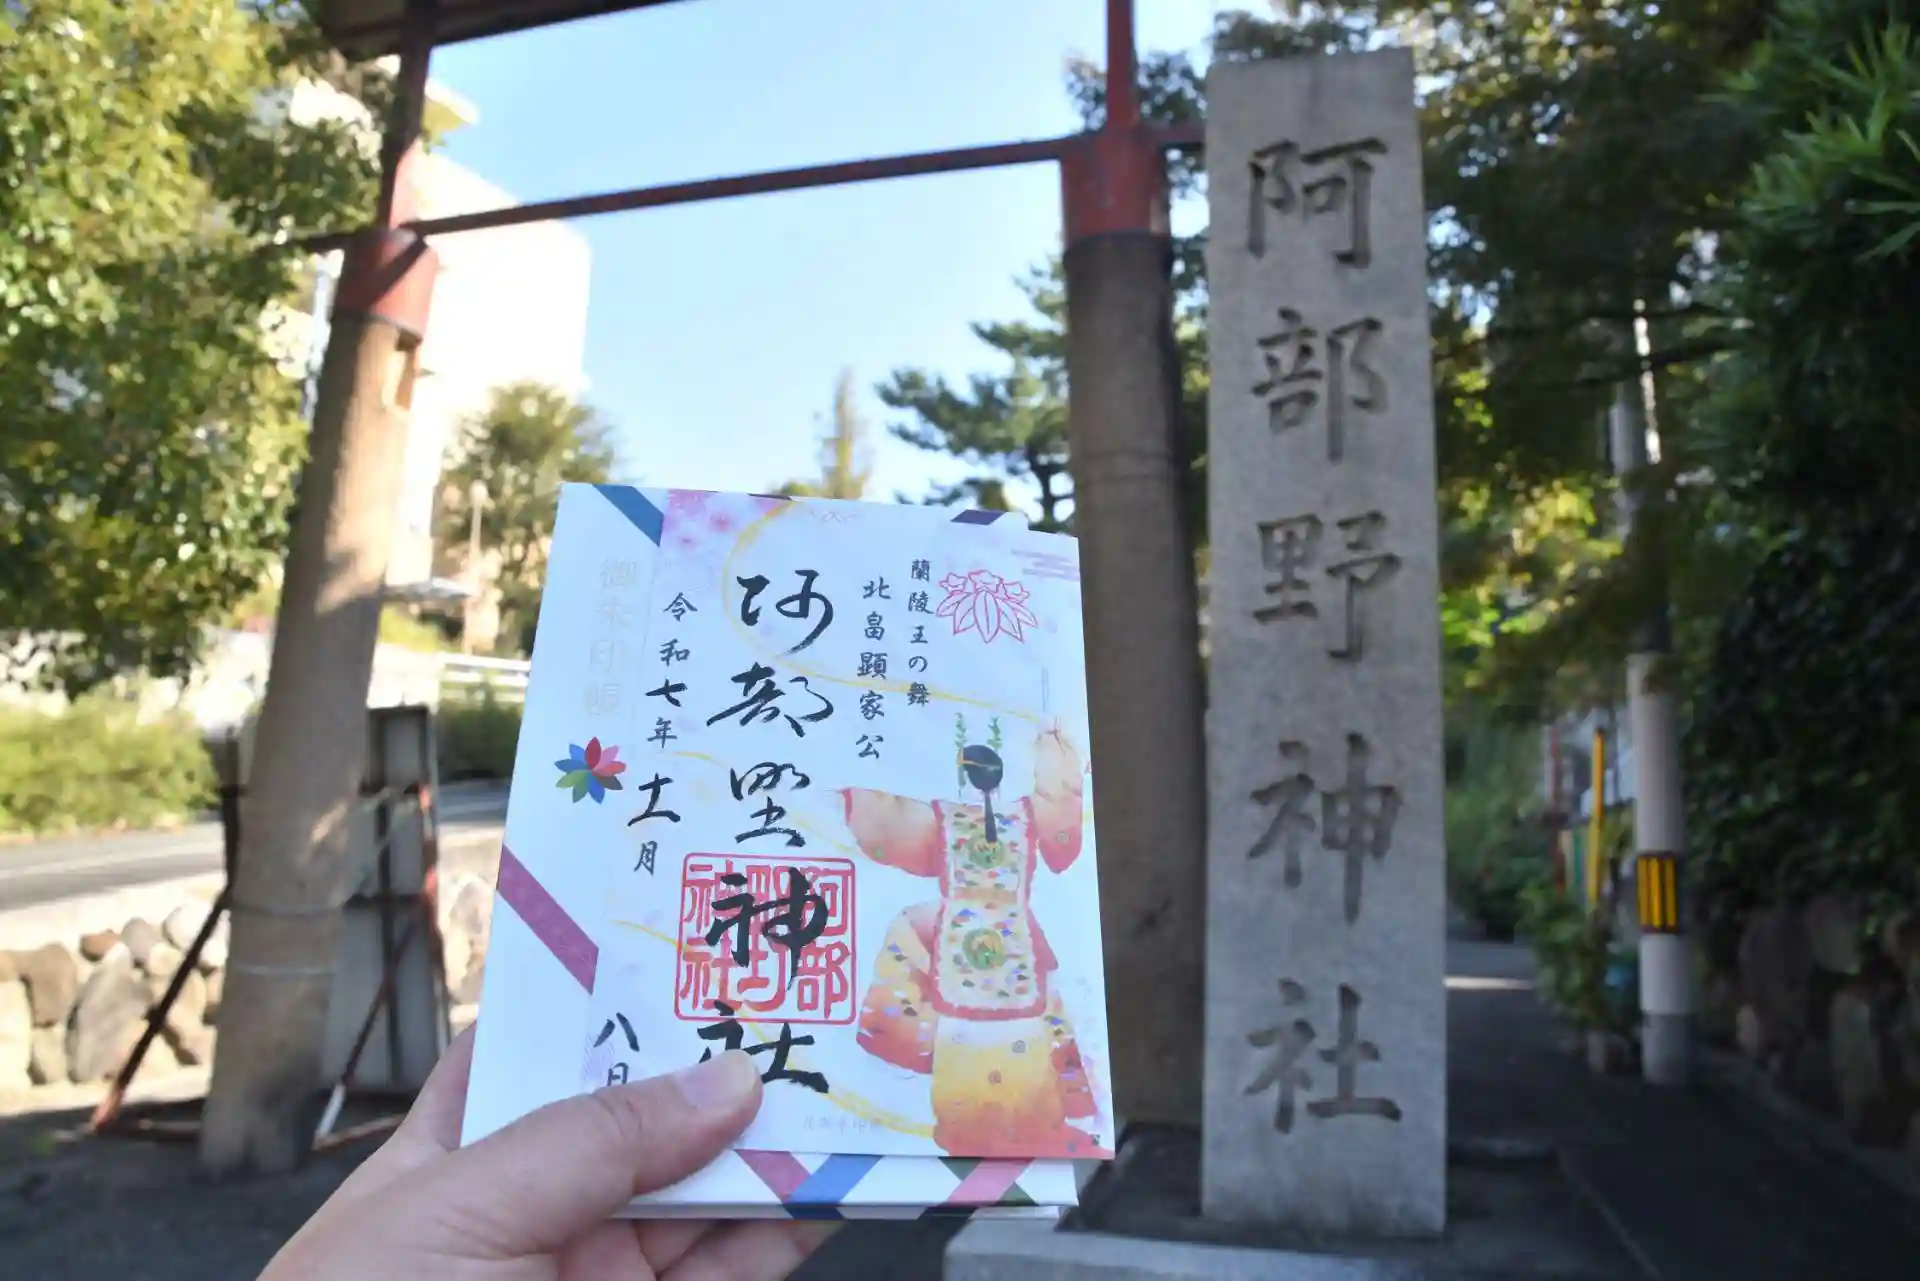 阿部野神社
蘭陵王の舞
北畠顕家公
阿部野神社
阿部野神社
令和七年十一月八日
御朱印帳